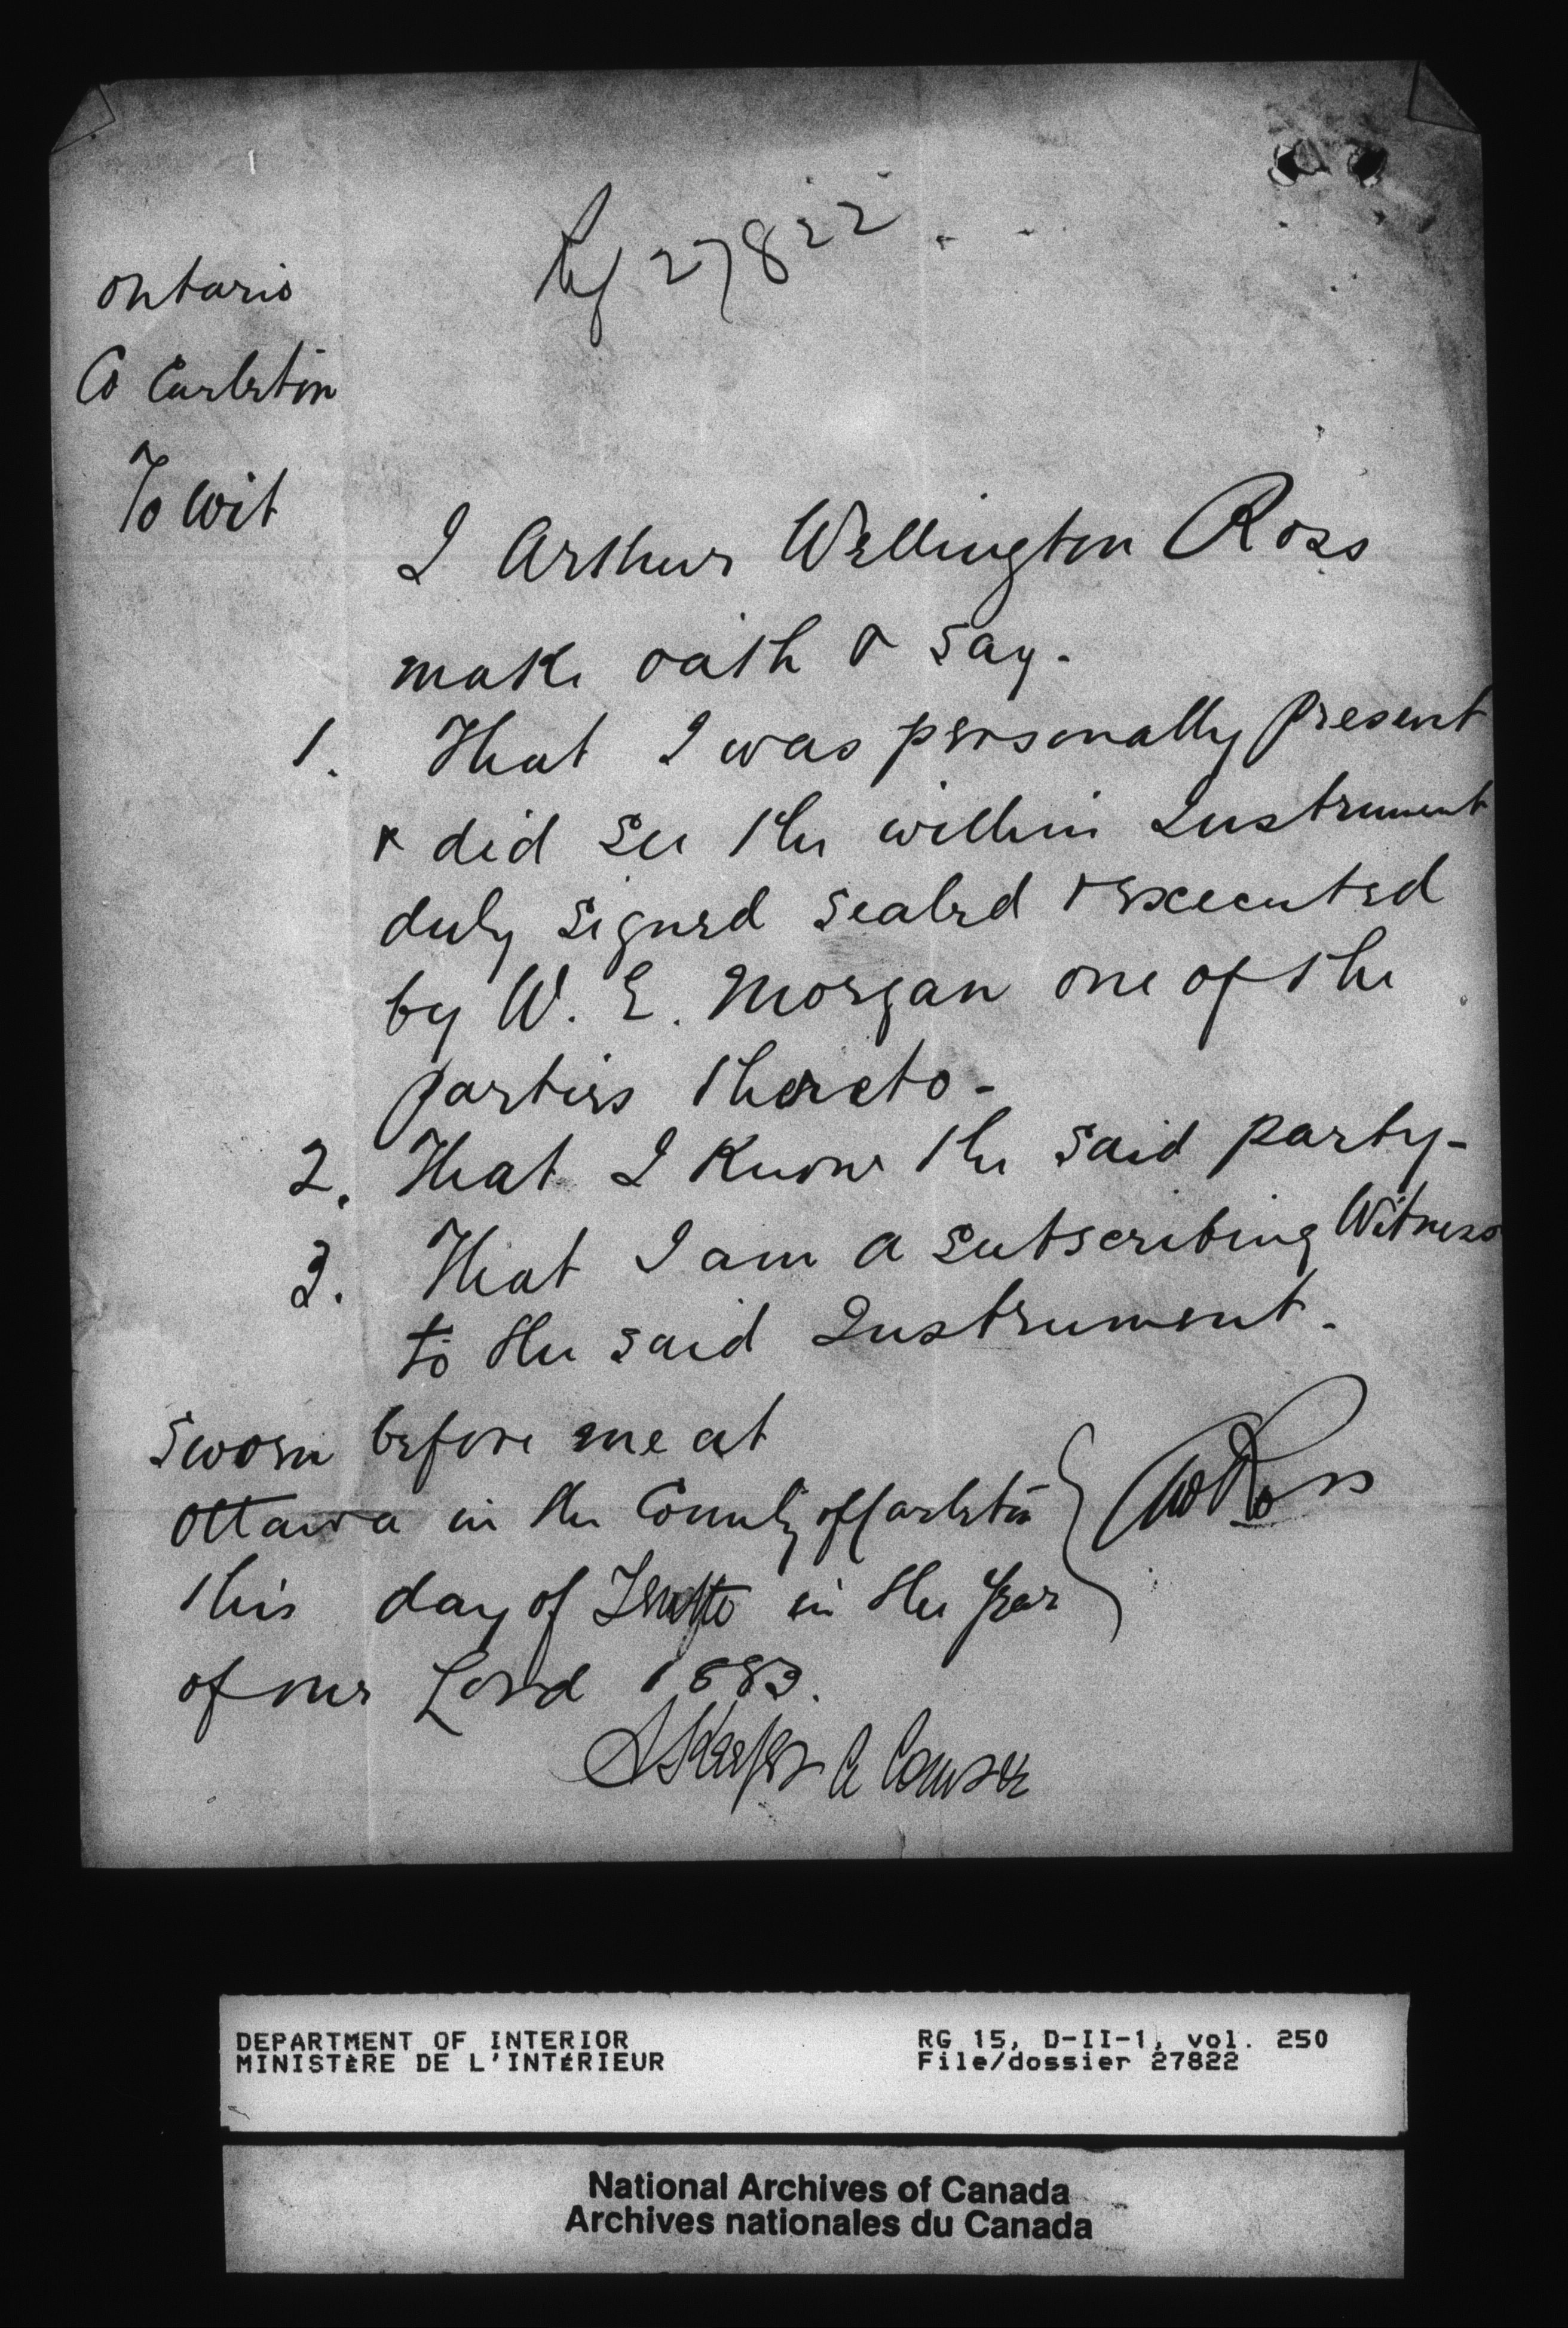 Ref 27822
Ontario
Co Carleton
To Wit
I Arthur Wellington Ross
make oath & say.
1. That I was personally present
& did see the within Instrument
duly signed sealed & executed
by W. E. Morgan one of the
parties thereto -
2. That I know the said party -
3. That I am a subscribing Witness
to the said Instrument.
Sworn before me at
Ottawa in the County of Carleton
this day of in the year
of our Lord 1883.
AW Ross
A
DEPARTMENT OF INTERIOR
MINISTÈRE DE L'INTÉRIEUR
RG 15, D-II-1, vol. 250
File/dossier 27822
National Archives of Canada
Archives nationales du Canada